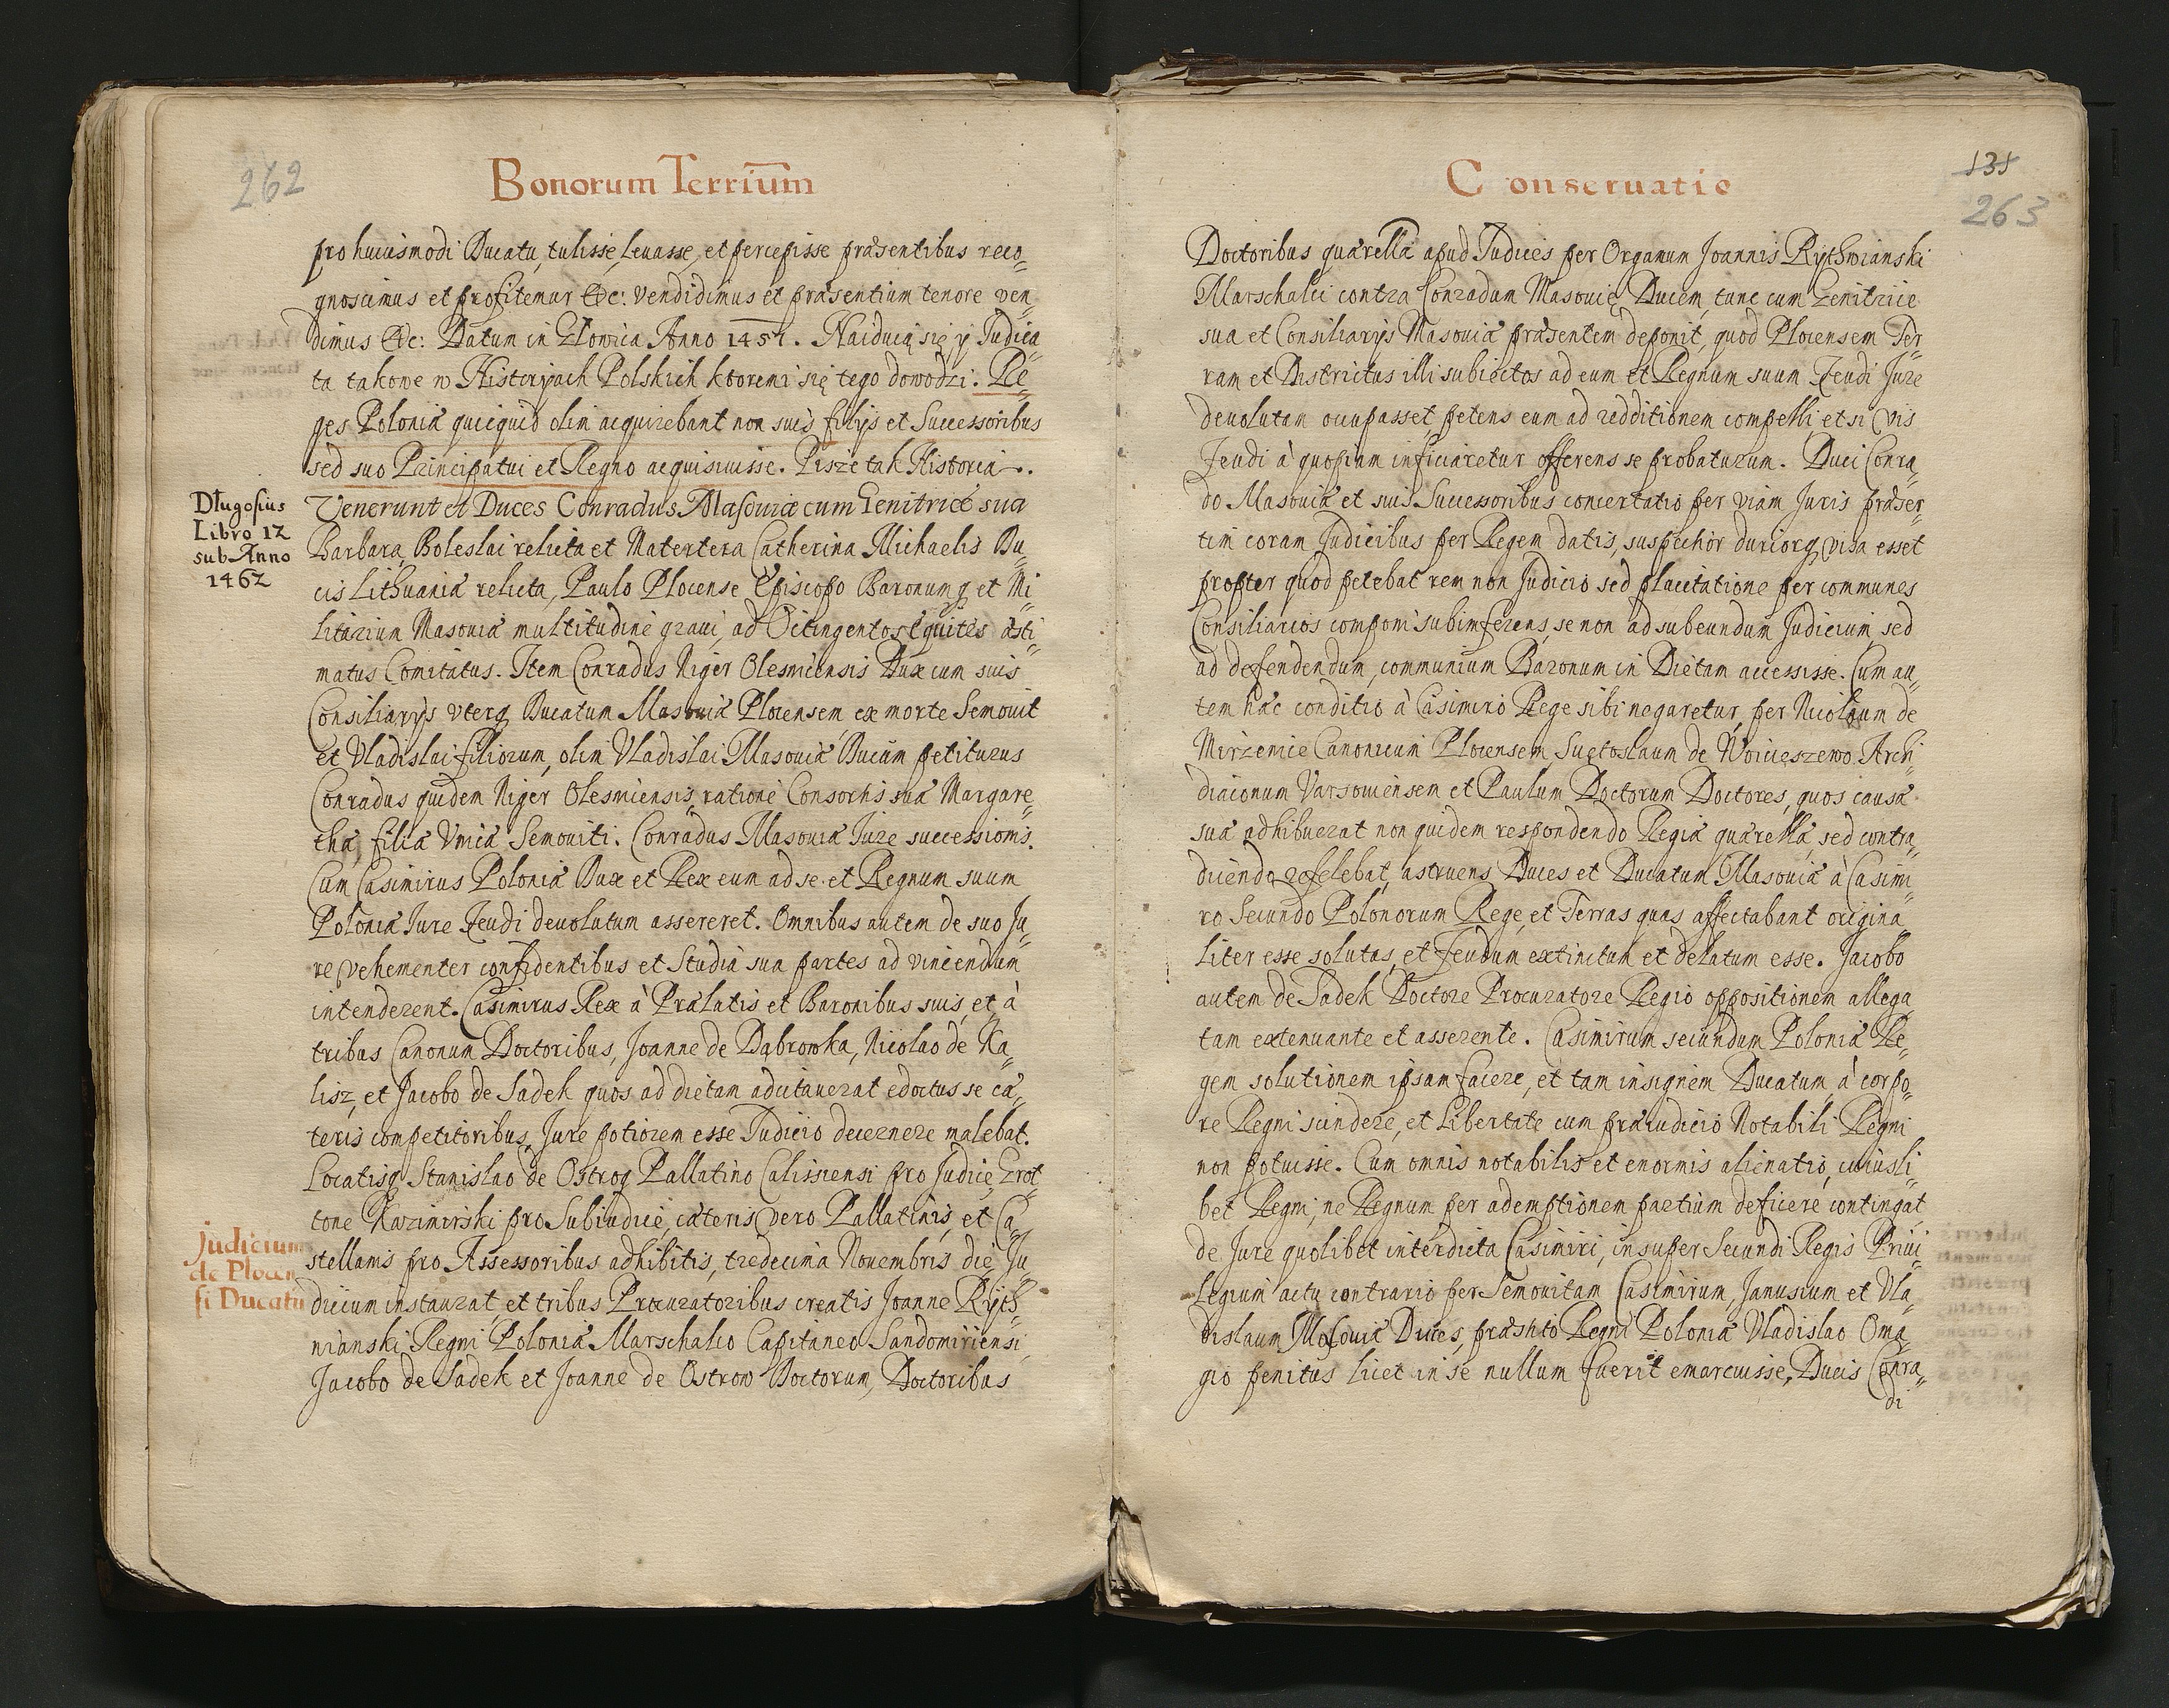 262
Bonorum Terrium̅
pro huiusmodi Ducatu, tulisse, leuasse, et percepisse præsentibus reco„
gnoscimus et profitemur &c: vendidimus et præsentium tenore ven„
dimus &c: Datum in Zlowica Anno 1457. Naiduią się y Judica„
ta takowe w Historyach Polskich ktoremi się tego dowodzi. Re„
ges Poloniæ quicquid olim acquirebant non suis filijs et Successoribus
sed suo Principatui et Regno acquisiuisse. Pisze tak Historia.
Długosius
Libro 12
sub Anno
1462
Venerunt et Duces Conradus Masouiæ cum Genitrice sua
Barbara Boleslai relicta et Matertera Catherina Michaelis Du„
cis Lithuaniæ relicta, Paulo Plocense Episcopo Baronumq et Mi„
litarium Masouiæ multitudine graui, ad Octingentos Equites æsti„
matus Comitatus. Item Conradus Niger Olesnicensis Dux cum suis
Consiliarijs vterq Ducatum Masouiæ Plocensem ex morte Semouit
et Vladislai filiorum, olim Vladislai Masouiæ Ducum petiturus
Conradus quidem Niger Olesniensis, ratione Consortis suæ Margare„
thæ, filiæ Vnicæ Semouiti. Conradus Masouiæ Jure successionis.
Cum Casimirus Poloniæ Dux et Rex eum ad se et Regnum suum
Poloniæ Jure Feudi deuolutum assereret. Omnibus autem de suo Ju„
re vehementer confidentibus et Studia sua partes ad vincendum
intenderent. Casimirus Rex à Prælatis et Baronibus suis, et à
tribus Canonum Doctoribus, Joanne de Dąbrowka, Nicolao de Ka„
lisz, et Jacobo de Sadek quos ad dietam aduitauerat edoctus se cæ„
teris competitoribus, Jure potiorem esse Judicio decernere malebat.
Locatisq Stanislao de Ostrog Pallatino Calissiensi pro Judice, Srot„
tone Kazimirski pro Subiudice, cæteris vero Pallatinis, et Ca„
stellanis pro Assessoribus adhibitis, tredecima Nouembris die Ju„
Judicium
de Plocen
si Ducatu
dicium instaurat, et tribus Procuratoribus creatis Joanne Ryth„
wianski Regni Poloniæ Marschalco Capitaneo Sandomiriensi,
Jacobo de Sadek et Joanne de Ostrow Doctorum, Doctoribus
135
263
Conseruatio
Doctoribus quærella apud Judices per Organum Joannis Rythwianski
Marschalci contra Conradum Masouię Ducem, tunc cum Genitrice
sua et Consiliarijs Masouiæ præsentem deponit, quod Plocensem Ter„
ram et Districtus illi subiectos ad eum et Regnum suum Feudi Jure
deuolutam occupasset, petens eum ad redditionem compelli et si vis
Feudi à quopiam inficiaretur offerens se probaturum. Duci Conra„
do Masouiæ et suis Successoribus concertatio per viam Juris præser„
tim coram Judicibus per Regem datis, suspectior duriorq visa esset
propter quod petebat rem non Judicio sed placitatione per communes
Consiliarios componi subinferens, se non ad subeundum Judicium, sed
ad defendendum, communium Baronum in Dietam accessisse. Cum au„
tem hæc conditio à Casimiro Rege sibi negaretur, per Nicolaum de
Mirzenie Canonicum Plocensem, Suętoslaum de Woicieszewo Archi„
diaconum Varsouiensem et Paulum Doctorum Doctores, quos causæ
suæ adhibuerat non quidem respondendo Regiæ quærellæ, sed contra„
dicendo refelebat, astruens Duces et Ducatum Masouiæ à Casimi„
ro Secundo Polonorum Rege, et Terras quas affectabant origina„
liter esse solutas, et feudum extinctum et delatum esse. Jacobo
autem de Sadek Doctore Procuratore Regio oppositionem allega„
tam extenuante et asserente. Casimirum secundum Poloniæ Re„
gem solutionem ipsam facere, et tam insignem Ducatum à corpo„
re Regni scindere, et Libertate cum præiudicio Notabili Regni
non potuisse. Cum omnis notabilis et enormis alienatio, cuiusli„
bet Regni, ne Regnum per ademptionem partium deficere contingat
de Jure quolibet interdicta Casimiri, insuper Secundi Regis Priui„
legium actu contrario per Semouitam Casimirum, Janusium et Vla„
dislaum Masouiæ Duces, præstito Regni Poloniæ Vladislao Oma„
gio penitus licet in se nullum fuerit emarcuisse, Ducis Conra„
di